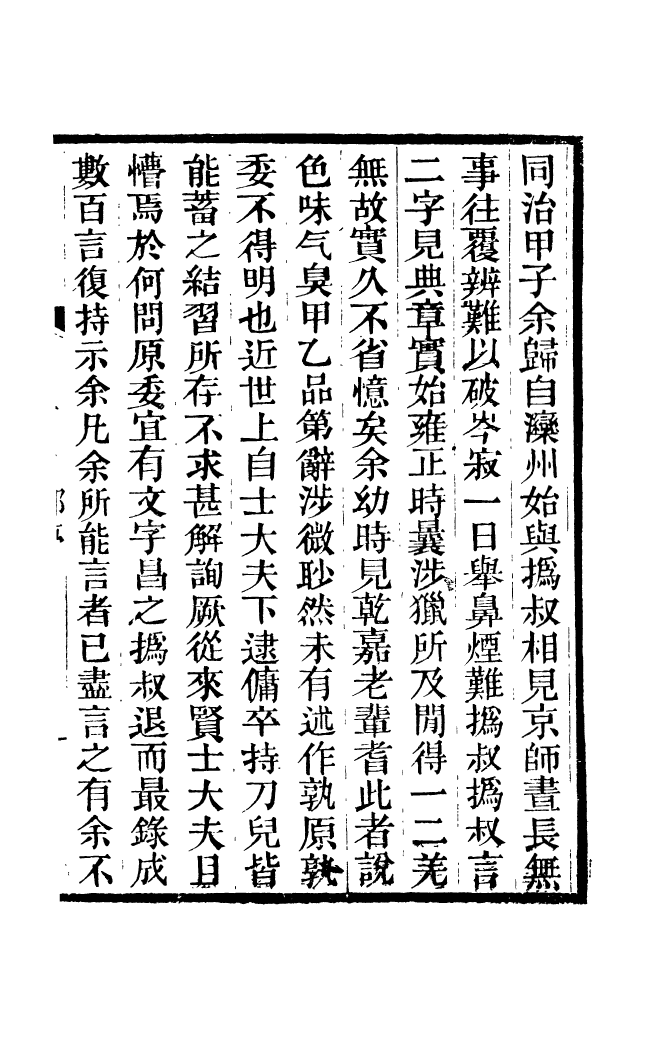 同治甲子余歸自灤州始與撝叔相見京師晝長無
事往覆辨難以破岑寂一日舉鼻煙難撝叔撝叔言
二字見典章實始雍正時曩涉獵所及閒得一二羌
無故實久不省憶矣余幼時見乾嘉老輩耆此者說
色味气臭甲乙品第辭涉微眇然未有述作孰原孰
委不得明也近世上自士大夫下逮傭卒持刀兒皆
能蓄之結習所存不求甚解詢厥從來賢士大夫且
懵焉於何問原委宜有文字昌之撝叔退而最錄成
數百言復持示余凡余所能言者已盡言之有余不